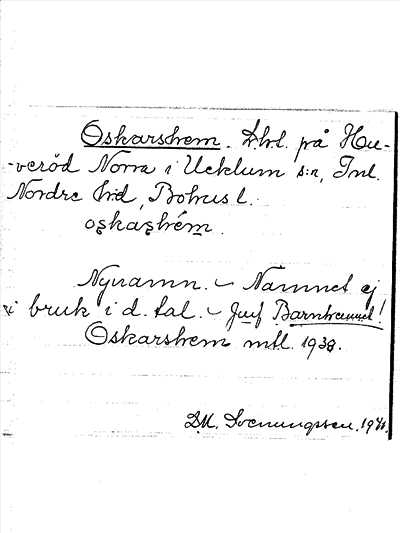 Oskarshem. Lht. på Hu-
-veröd Norra i Ucklum s:n, Inl.
Nordre hd, Bohusl.
oʂkaʂhém.
Nynamn. – Namnet ej
i bruk i d. tal. – Jmf Barnhemmet!
Oskarshem mtl. 1938.
D.M. Svenungsson. 1941.